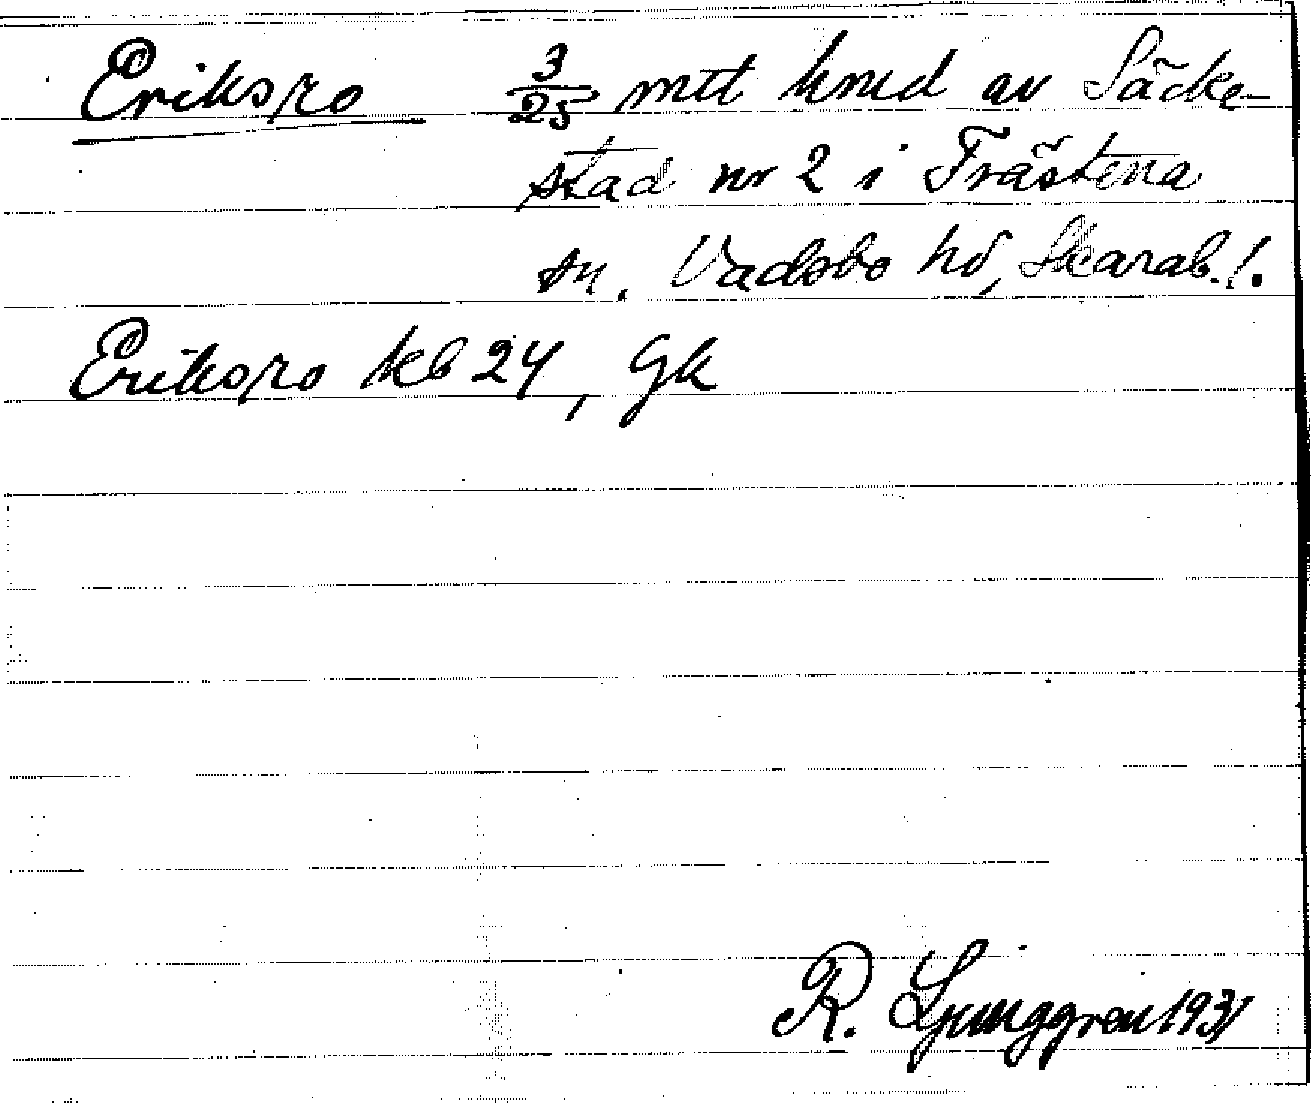 Eriksro 3/25 mtl kmd av Säcke-
stad nr 2 i Trästena
sn. Vadsbo hd, Skarab. l.
Eriksro kb 24, Gk
R. Ljunggren 1931